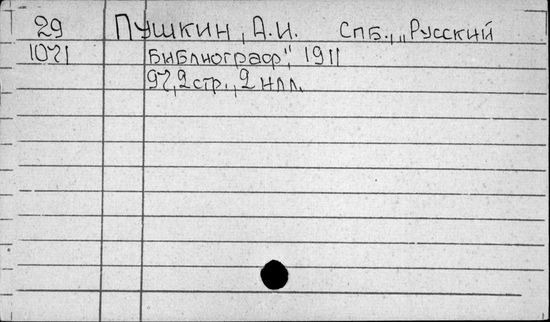 29 ПУШКИН, А.И. СПБ., „РУССКИЙ
1071 БИБЛИОГРАФ", 1911
97,2 стр., 2 ИЛЛ.